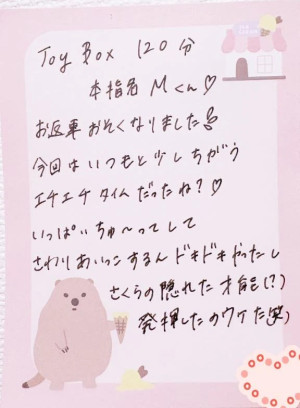 Toy Box 120分
本指名 Mくん♡
お返事おそくなりました
今回はいつもと少しちがう
エチエチタイムだったね?♡
いっぱいちゅ〜ってして
さわりあいっこするんドキドキやったし
さくらの隠れた才能(?)
発揮したのウケた(笑)